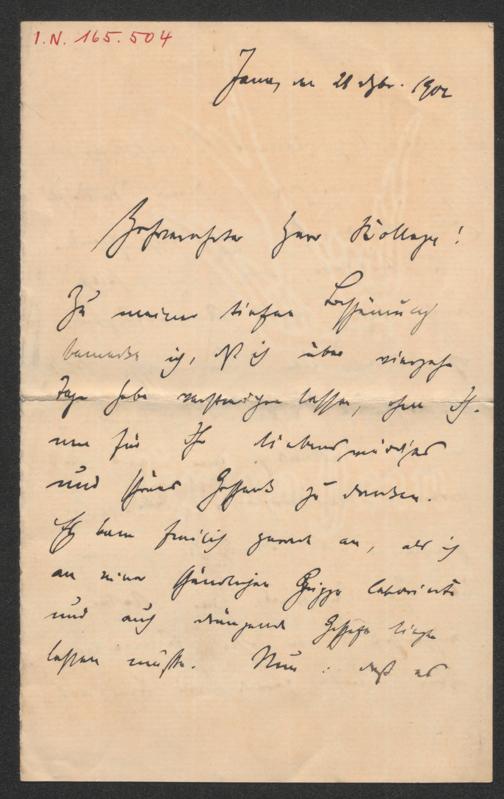 I.N. 165.504
Jena, den 21 Dzbr. 1902
Hochverehrter Herr Kollege!
Zu meiner tiefen Beschämung
bemerke ich, daß ich über vierzehn
Tage habe verstreichen lassen, ohne Ih-
nen für Ihr liebenswürdiges
und schönes Geschenk zu danken.
Es kam freilich gerade an, als ich
an einer schändlichen Grippe laborierte
und auch dringende Geschäfte liegen
lassen mußte. Nun: daß es